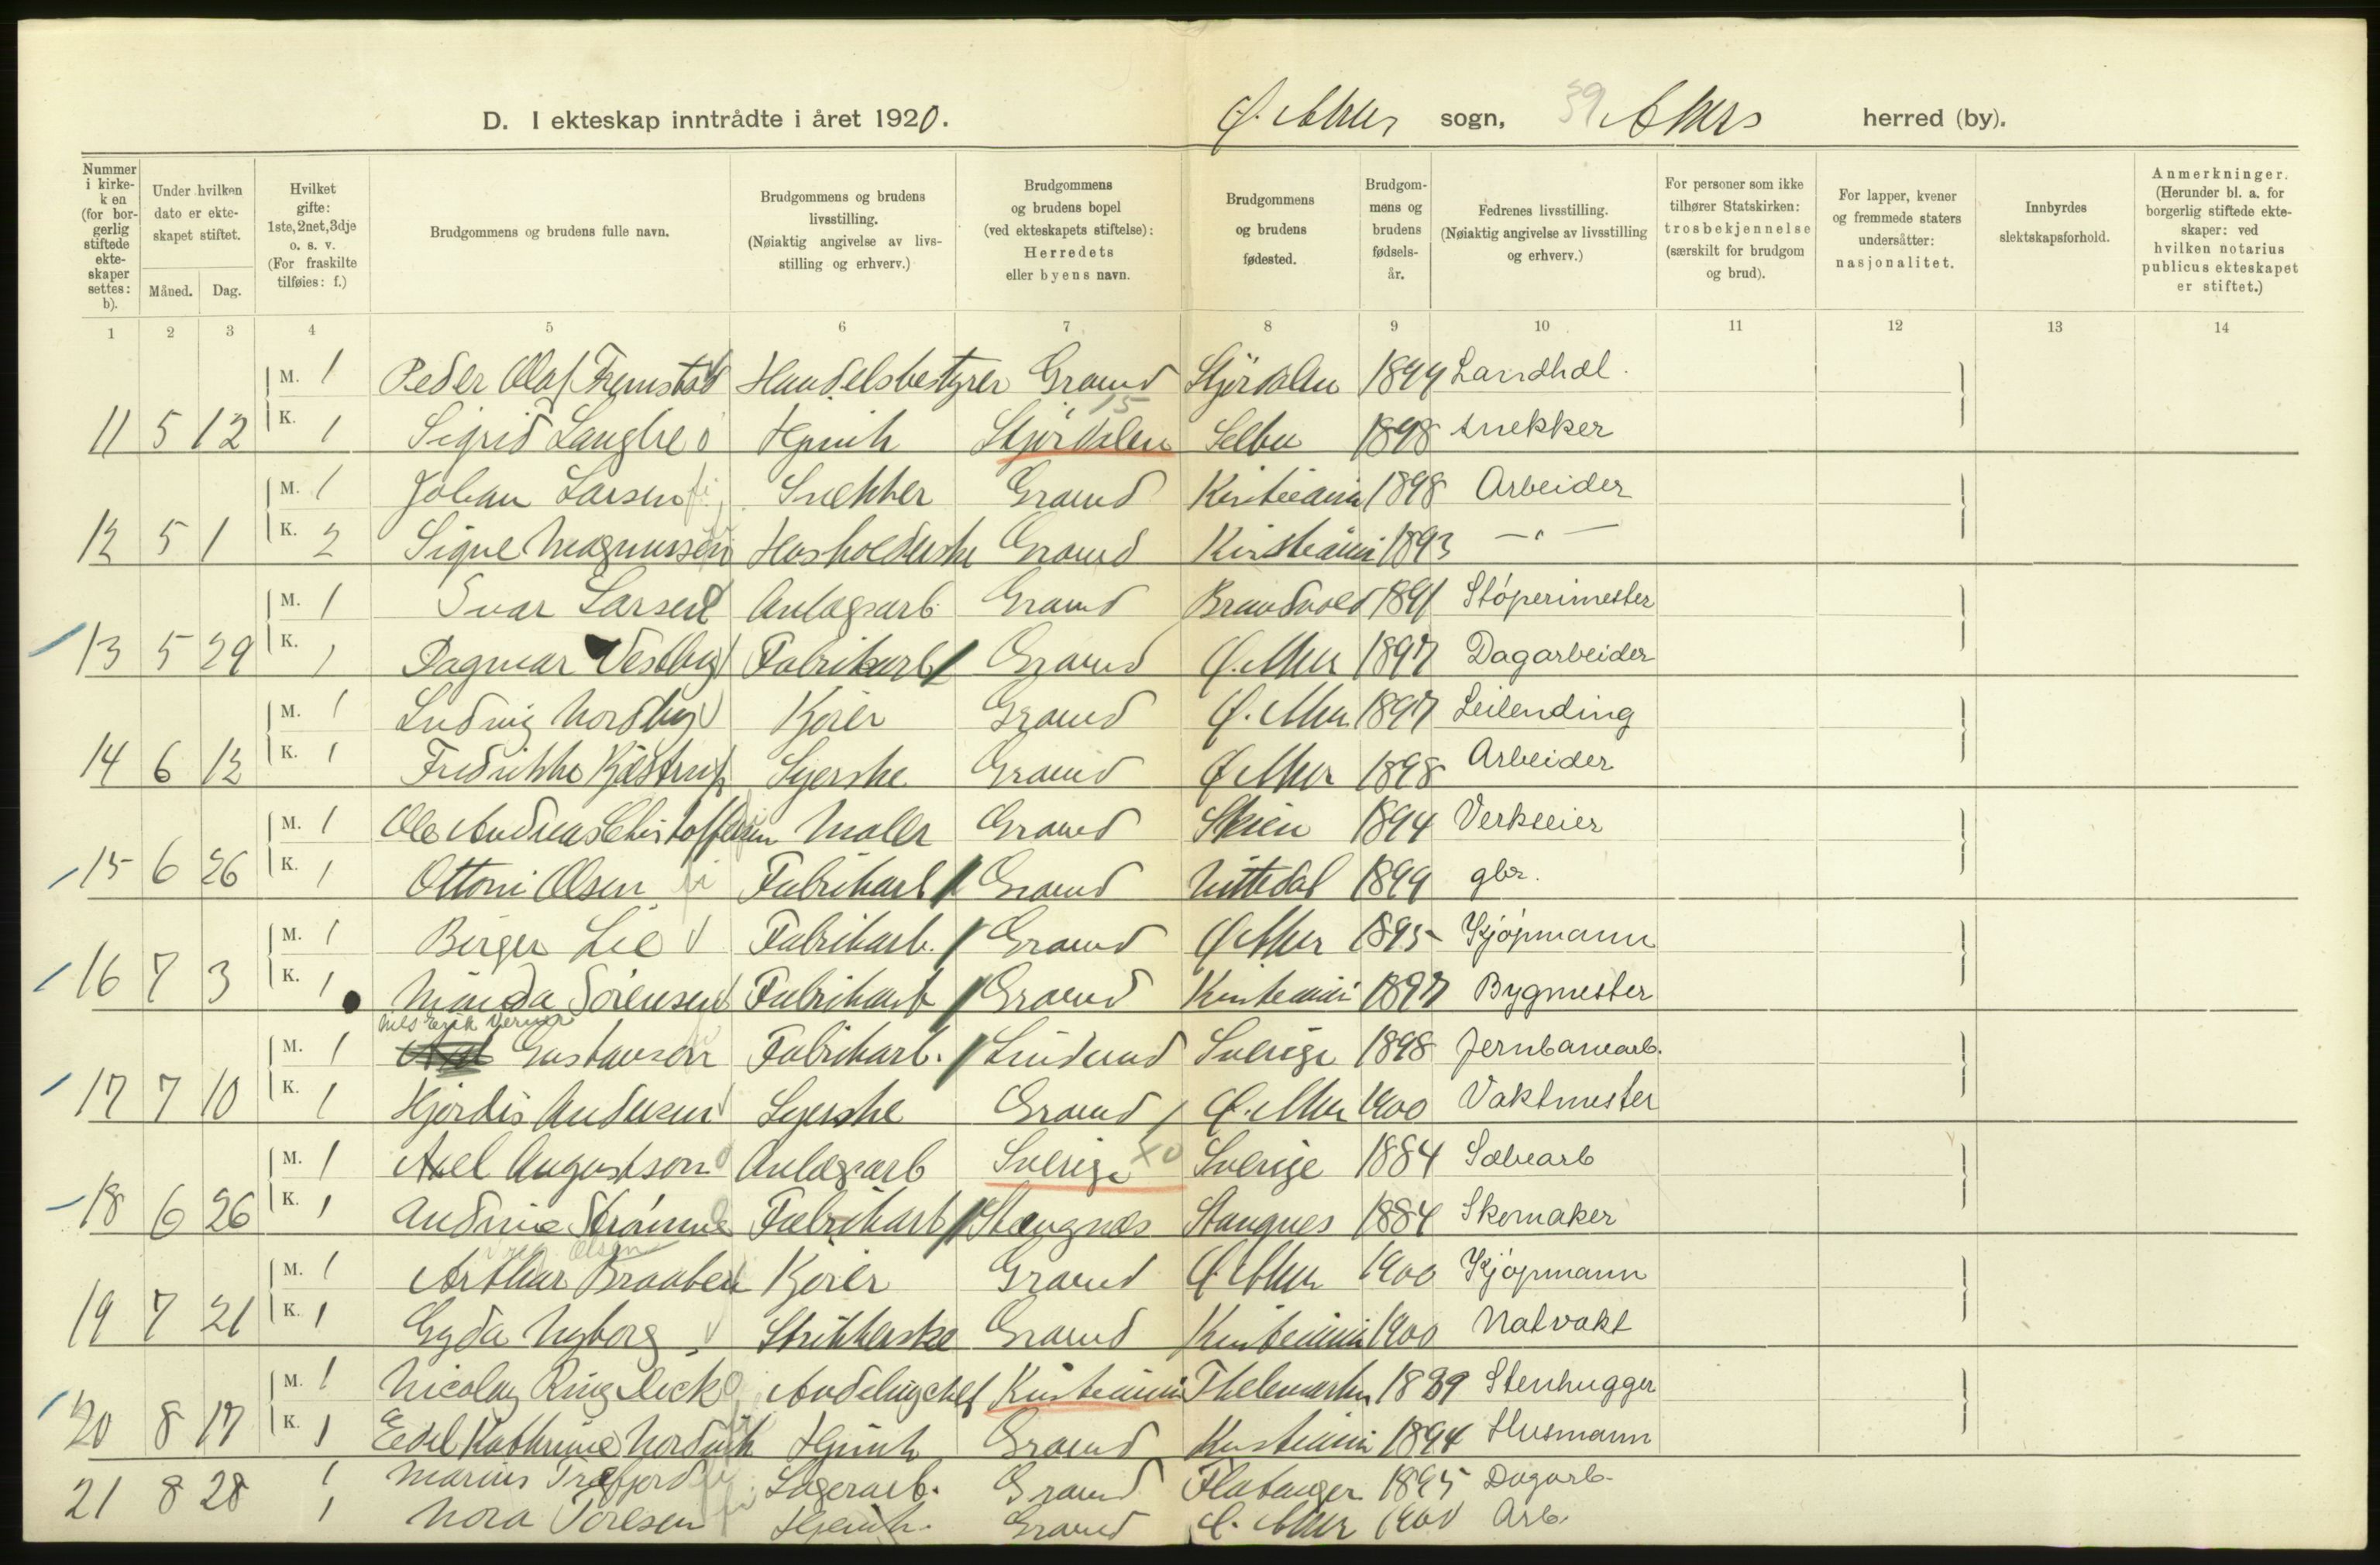 D. I ekteskap inntrådte i året 1920. Ø. Aker sogn, 39 Akers herred (by).
Nummer i kirkeken (for borgerlig stiftede ekteskaper settes: b).
Under hvilken dato er ekteskapet stiftet.
Måned. Dag.
Hvilket gifte: 1ste, 2net, 3dje o. s. v. (For fraskilte tilføies: f.)
Brudgommens og brudens fulle navn.
Brudgommens og brudens livsstilling. (Nøiaktig angivelse av livsstilling og erhverv.)
Brudgommens og brudens bopel (ved ekteskapets stiftelse): Herredets eller byens navn.
Brudgommens og brudens fødested.
Brudgommens og brudens fødselsår.
Fedrenes livsstilling. (Nøiaktig angivelse av livsstilling og erhverv.)
For personer som ikke tilhører Statskirken: trosbekjennelse (særskilt for brudgom og brud).
For lapper, kvener og fremmede staters undersåtter: nasjonalitet.
Innbyrdes slektskapsforhold.
Anmerkninger. (Herunder bl. a. for borgerlig stiftede ekteskaper: ved hvilken notarius publicus ekteskapet er stiftet.)
1 2 3 4 5 6 7 8 9 10 11 12 13 14
M. 1 Peder Olaf Fremstad Handelsbestyrer Grorud Stjørdalen 1899 Landhdl.
11 5 12 K. 1 Sigrid Langlie Hjemh Stjørdalen 15 Selbu 1898 snekker
M. 1 Johan Larsen Snekker Grorud Kristiania 1898 Arbeider
12 5 1 K. 2 Signe Magnussen Husholderske Grorud Kristiania 1893 — " —
M. 1 Ivar Larsen Anlægsarb Grorud Brandvold 1891 Støperimester
13 5 29 K. 1 Dagmar Vestby Fabrikarb Grorud Ø. Aker 1897 Dagarbeider
M. 1 Ludvig Nordby Kjører Grorud Ø. Aker 1897 Leilending
14 6 12 K. 1 Fredrikke Kjæstrup Syerske Grorud Ø Aker 1898 Arbeider
M. 1 Ole Andreas Christoffersen Maler Grorud Skien 1894 Verkseier
15 6 26 K. 1 Ottoni Olsen Fabrikarb Grorud Nittedal 1899 gbr.
M. 1 Birger Lie Fabrikarb. Grorud Ø Aker 1895 Kjøpmann
16 7 3 K. 1 Minda Sørensen Fabrikarb Grorud Kristiania 1897 Bygmester
Nils Erik Verner
M. 1 Axel Gustavson Fabrikarb. Linderud Sverige 1898 Jernbanearb.
17 7 10 K. 1 Hjørdis Andersen Syerske Grorud Ø. Aker 1900 Vaktmester
M. 1 Axel Augustson Anlægsarb Sverige Sverige 1884 Sabearb
18 6 26 K. 1 Andrine Strømme Fabrikarb Stangnes Stangnes 1884 Skomaker
Olsen
M. 1 Arthur Braaben Kjører Grorud Ø. Aker 1900 Kjøpmann
19 7 21 K. 1 Gyda Nyborg Strikkerske Grorud Kristiania 1900 Natvakt
M. 1 Nicolay Ringsleck Avdelingchef Kristiania Thelemarken 1889 Stenhugger
20 8 17 K. 1 Edel Kathrine Nordvik Hjemh Grorud Kristiania 1894 Husmann
21 8 28 1 Marius Træfjord Lagerarb. Grorud Flatanger 1895 Dagarb.
1 Nora Toresen Hjemh. Grorud Ø. Aker 1900 Arb.